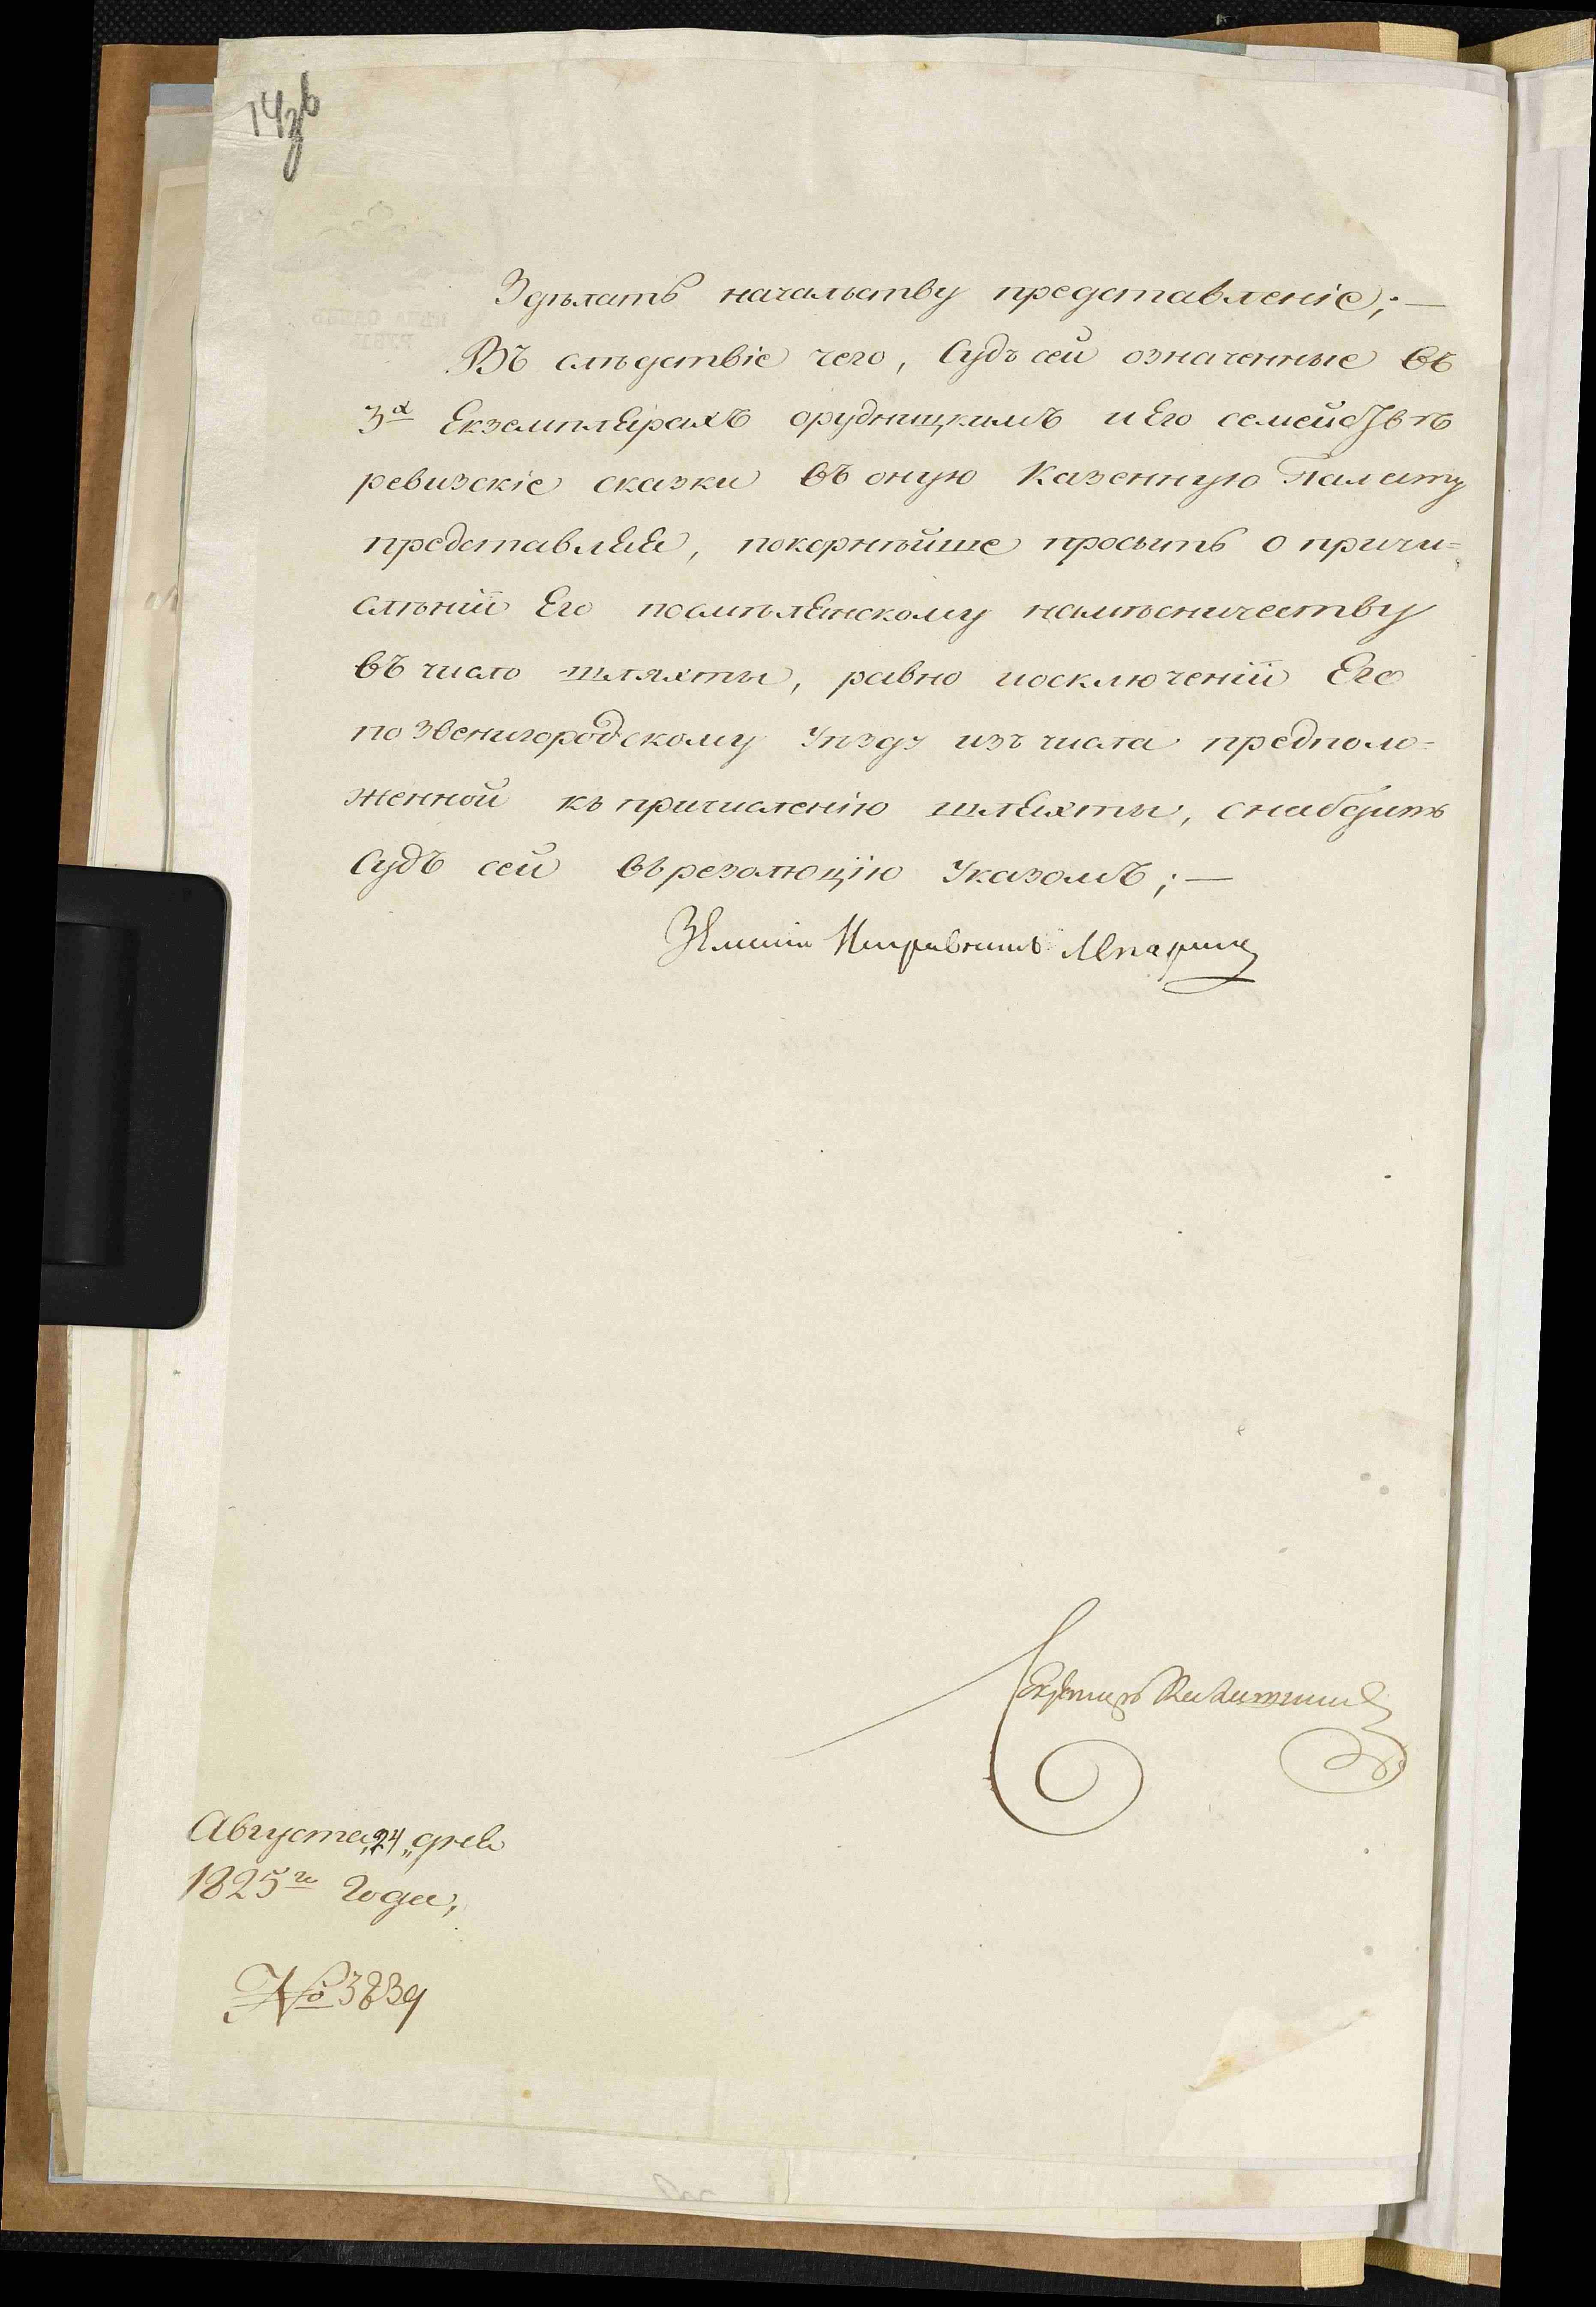 14зв
Здѣлать начальству представленіе;—
Въ слѣдствіе чего, Судъ сей означенные въ
3х Екземплярахъ орудницкимъ и Его семействѣ
ревизскіе сказки въ оную Казенную Палату
представляя, покорнѣйше просить о причи=
слѣніи Его посмѣлянскому намѣсничеству
въ число шляхты, равно иосключеніи Его
по Звенигородскому Уѣзду изъ числа предполо=
женной къ причисленію шляхты, снабдить
Судъ сей въ резолюцію Указомъ;—
Земскій Исправникъ
Секретарь
Августа „24„ дня
1825го Года,
№ 3839